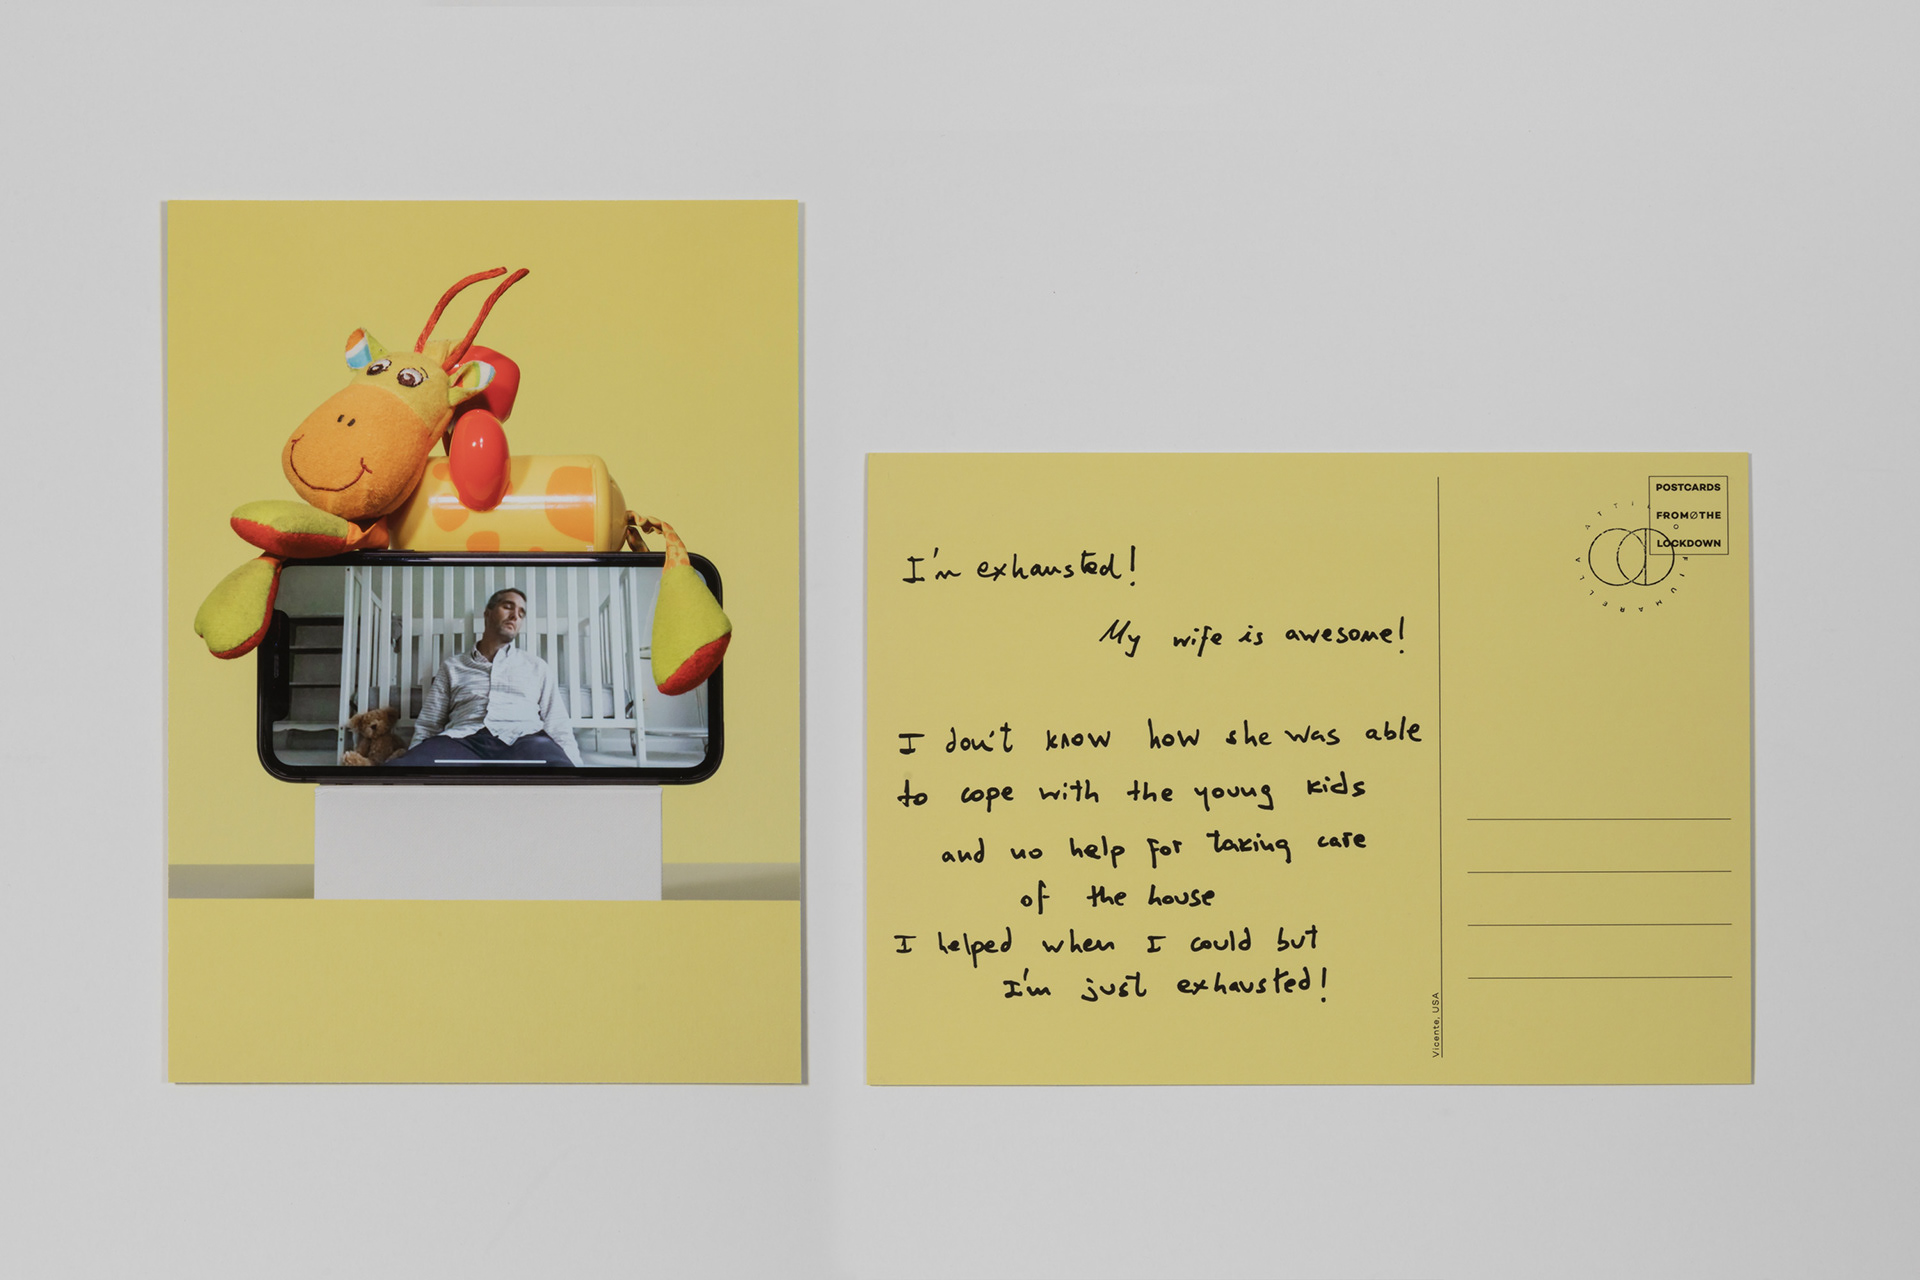 I'm exhausted!
My wife is awesome!
I don't know how she was able
to cope with the young kids
and no help for taking care
of the house
I helped when I could but
I'm just exhausted!
Vicente, USA
POSTCARDS
FROM∅THE
LOCKDOWN
ATTILIO FIUMARELLA